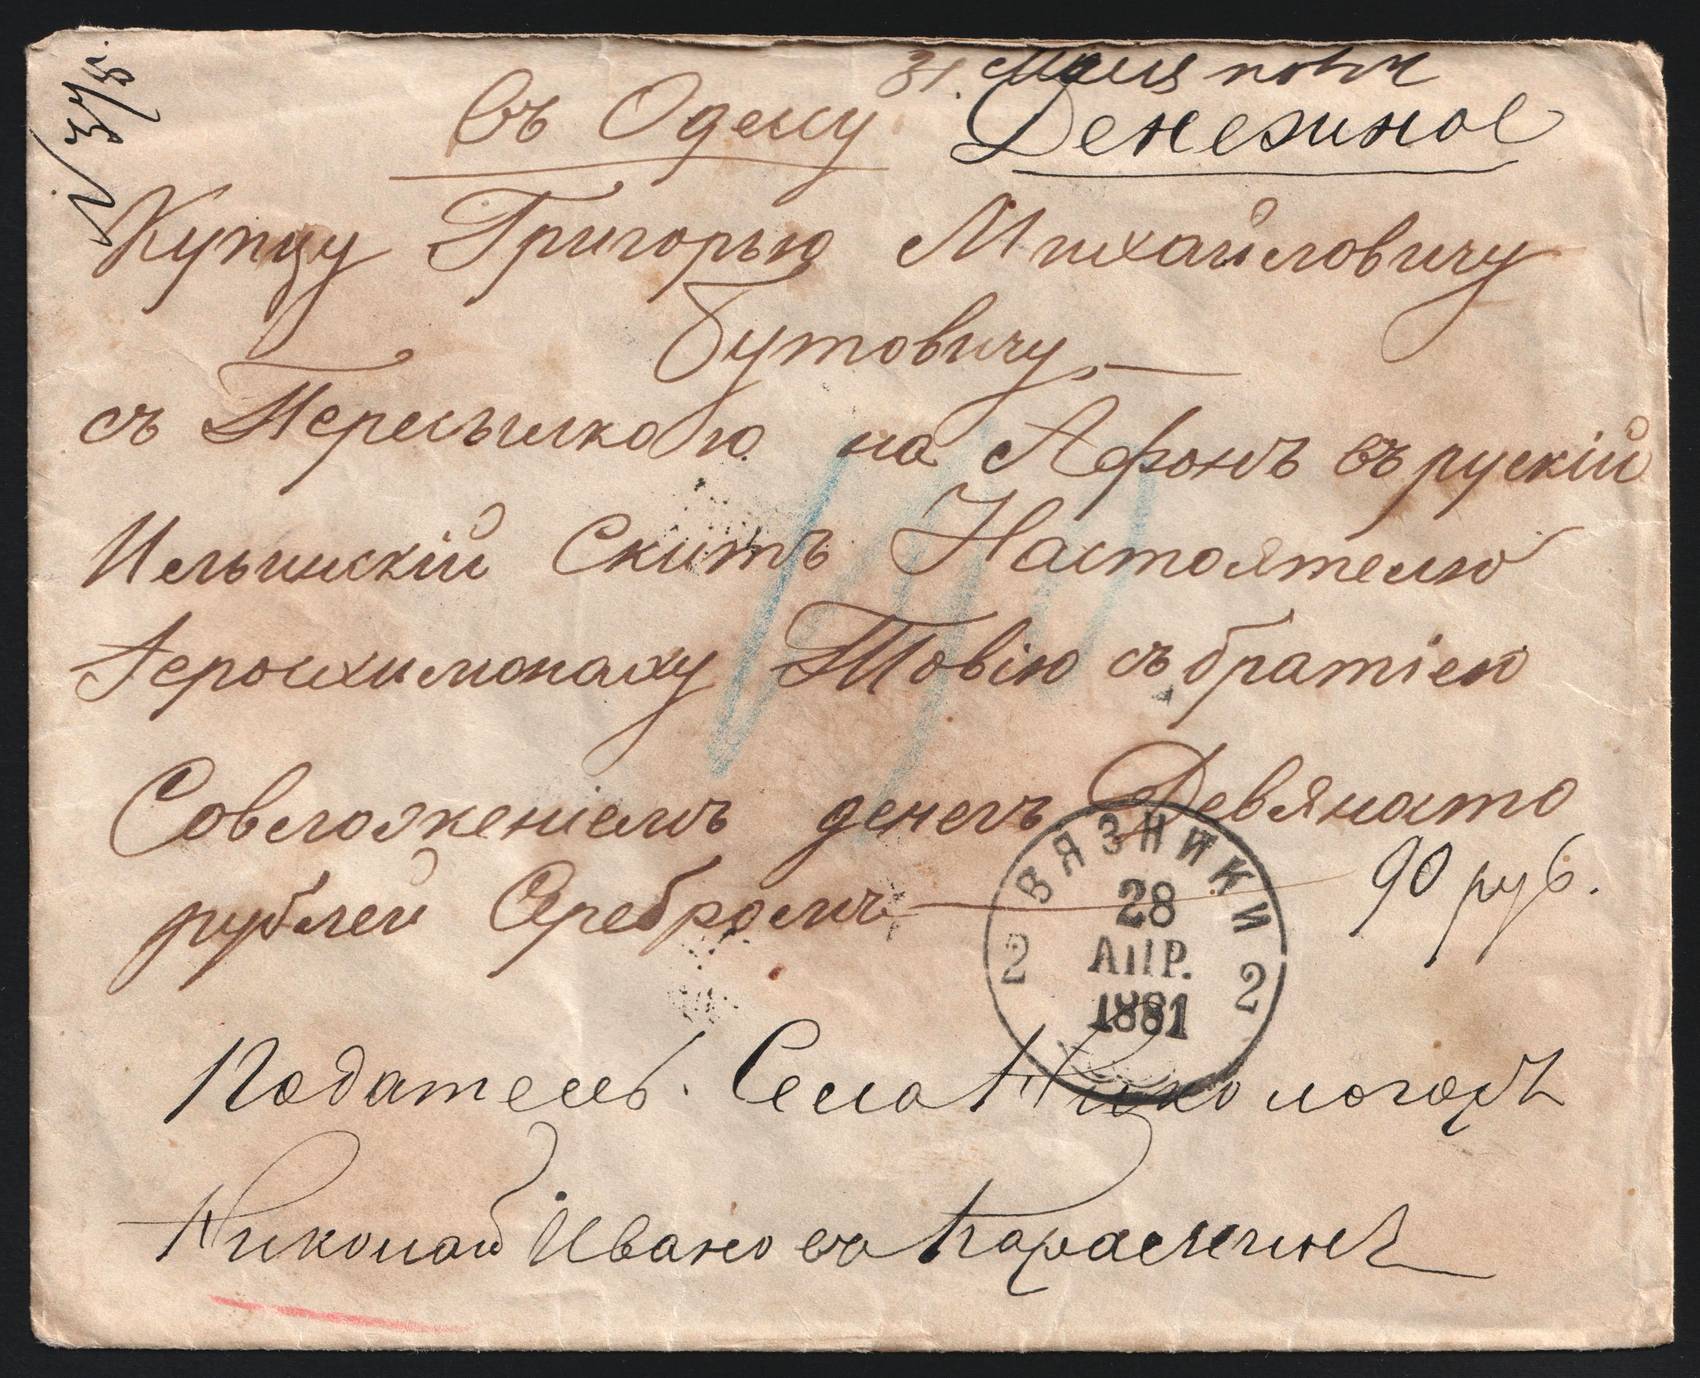 № 3/5.
Въ Одессу Денежное
Купцу Григорью Михайловичу
Бутовичу,—
съ Пересылкою на Афонъ въ рускій
Ильинскій Скитъ Настоятелю
Іеросхимонаху Товію съ братіею
Совложеніемъ денегъ Девяносто
рублей Серебромъ — 90 руб.
ВЯЗНИКИ
28
АПР.
1881
2 2
Податель. Села Никологоръ
Николай Иванов